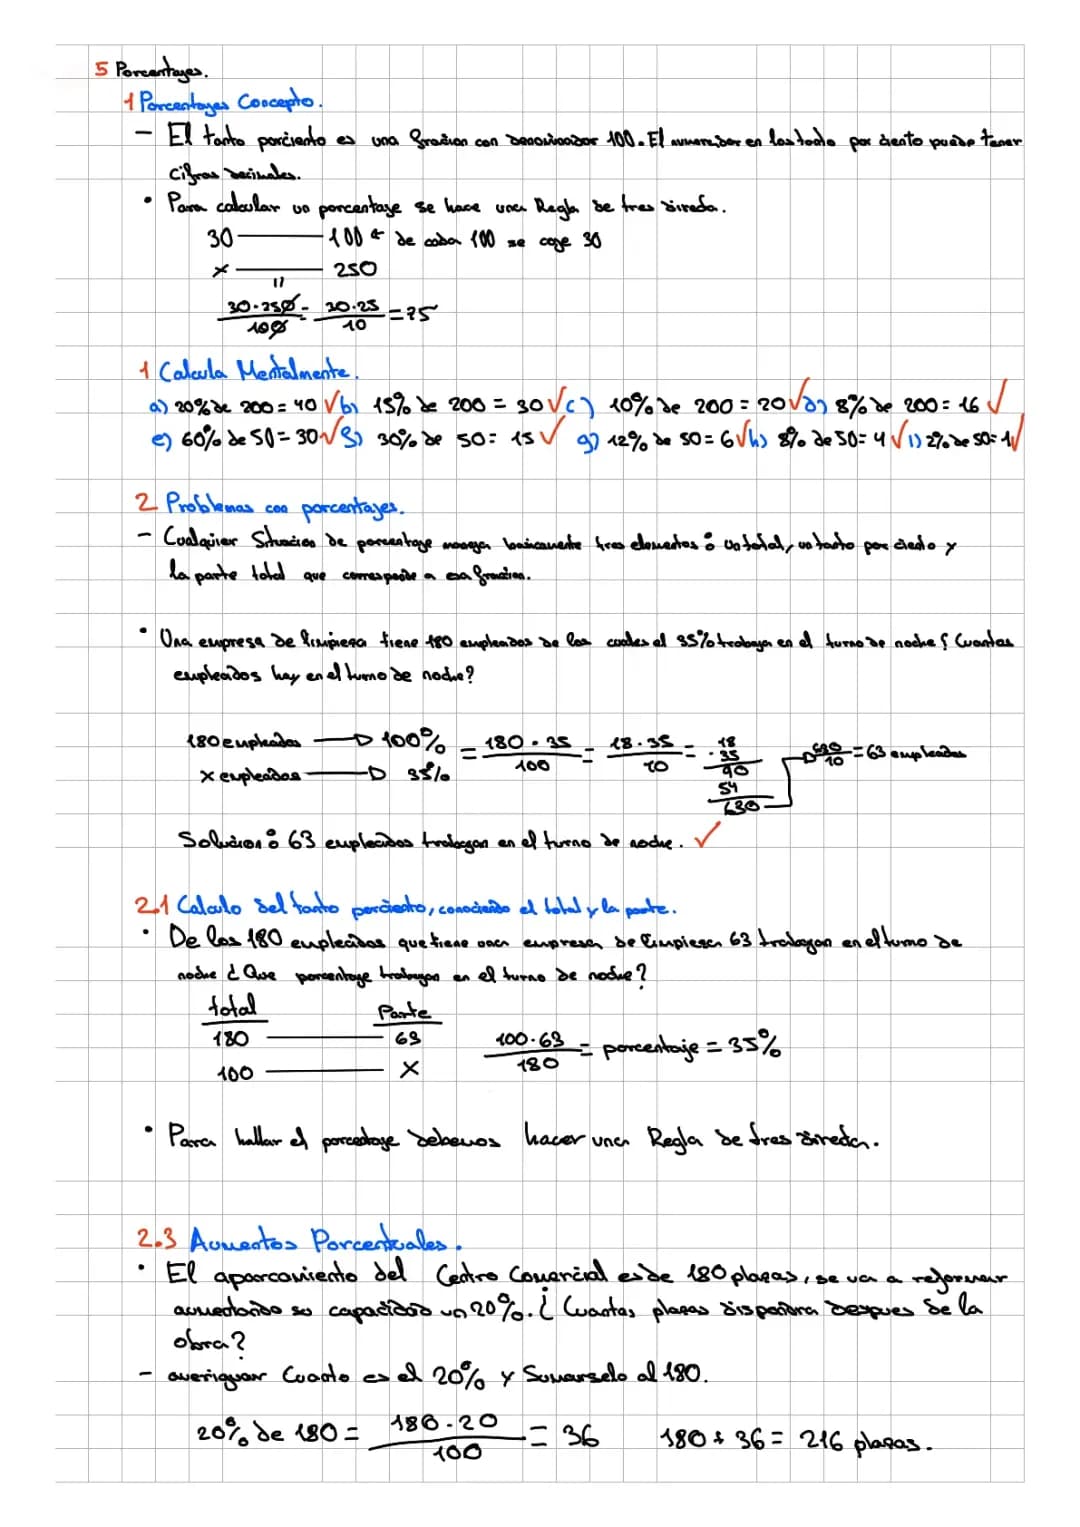 5 Porcentajes.
1 Porcentajes Concepto.
- El tanto porciento es una fracción con denominador 100. El numerador en los tanto por ciento puede tener
cifras decimales.
• Para calcular un porcentaje se hace una Regla de tres directa.
30 — 100 ← de cada 100 se coge 30
x — 250
=
30·250/100 = 30·25/10 = 75
1 Calcula Mentalmente.
a) 20% de 200 = 40 √ b) 15% de 200 = 30 √ c) 10% de 200 = 20 √ d) 8% de 200 = 16 √
e) 60% de 50 = 30 √ f) 30% de 50 = 15 √ g) 12% de 50 = 6 √ h) 8% de 50 = 4 √ i) 2% de 50 = 1 √
2 Problemas con porcentajes.
- Cualquier Situacion de porcentaje maneja basicamente tres elementos: un total, un tanto por ciento y
la parte total que corresponde a esa fraccion.
• Una empresa de limpieza tiene 180 empleados de los cuales el 35% trabaja en el turno de noche ¿ Cuantos
empleados hay en el turno de noche?
180 empleados → 100% = 180 · 35/100 = 18·35/10 = 18 · 35 90 54 630 → 630/10 = 63 empleados
x empleados → 35%
Solucion: 63 empleados trabajan en el turno de noche. √
2.1 Calculo del tanto porciento, conociendo el total y la parte.
• De los 180 empleados que tiene una empresa de limpieza 63 trabajan en el turno de
noche ¿ Que porcentaje trabajan en el turno de noche?
total Parte
180 — 63
100 — X
100·63/180 = porcentaje = 35%
• Para hallar el porcentaje debemos hacer una Regla de tres directa.
2.3 Aumentos Porcentuales.
• El aparcamiento del Centro Comercial es de 180 plazas, se va a reformar
aumentando su capacidad un 20%. ¿ Cuantas plazas dispondra despues de la
obra?
- averiguar Cuanto es el 20% y Sumarselo al 180.
20% de 180 = 180·20/100 = 36 180 + 36 = 216 plazas.